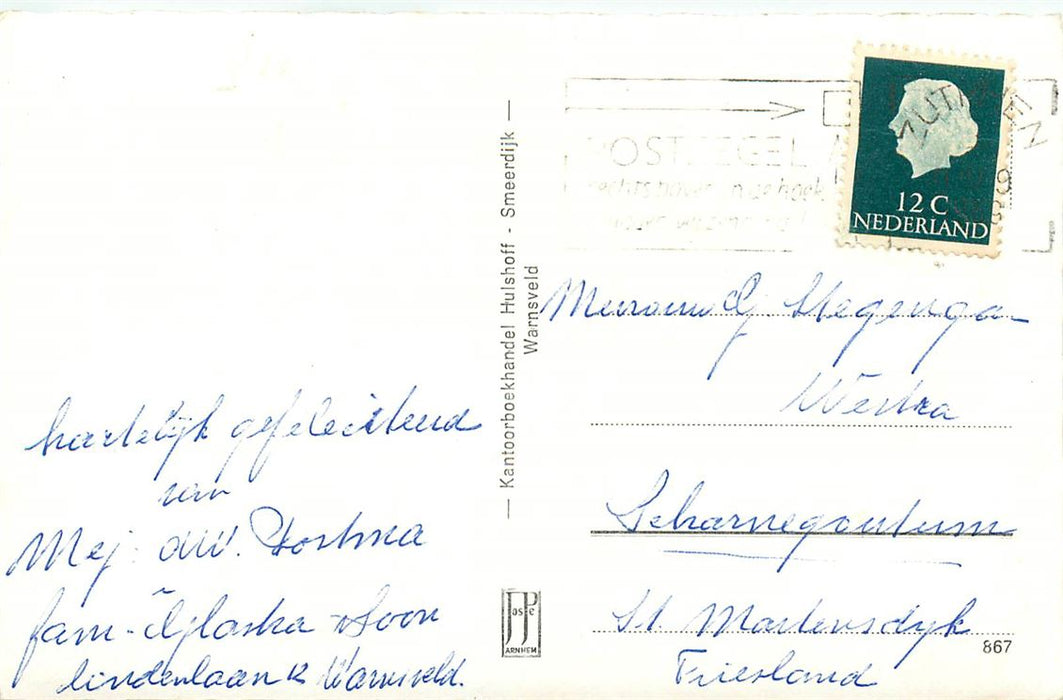 hartelijk gefeliciteerd
van
Mej. Postma
fam.
lindenlaan 12 Warnsveld.
— Kantoorboekhandel Hulshoff - Smeerdijk —
Warnsveld
JosPé
ARNHEM
ZUTPHEN
POSTZEGEL
rechts boven in de hoek
12 C
NEDERLAND
Mevrouw G. Stegenga
Westra
Scharnegoutum
St. Martensdyk
Friesland
867